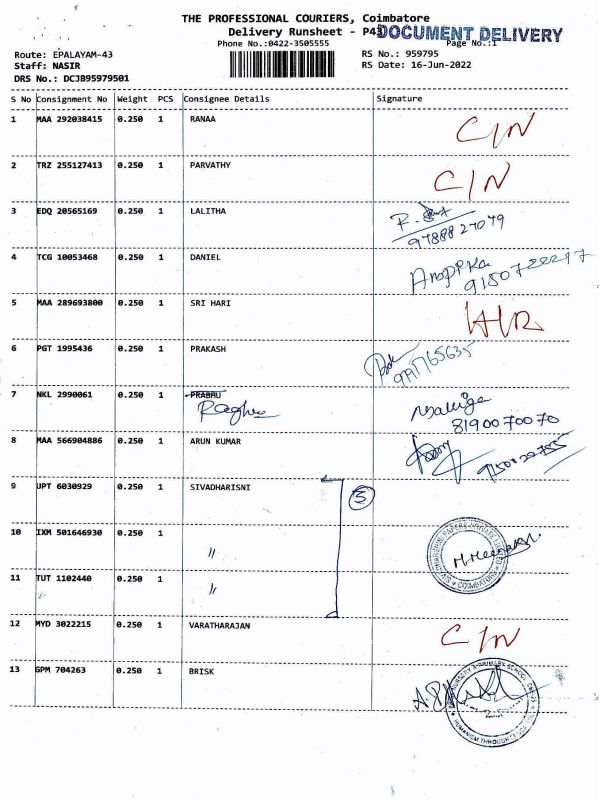 THE PROFESSIONAL COURIERS, Coimbatore
Delivery Runsheet - P43
DOCUMENT DELIVERY
Phone No.:0422-3505555
Page No.:1
Route: EPALAYAM-43
RS No.: 959795
Staff: NASIR
RS Date: 16-Jun-2022
DRS No.: DCJB95979501
S No Consignment No Weight PCS Consignee Details Signature
1 MAA 292038415 0.250 1 RANAA C/N
2 TRZ 255127413 0.250 1 PARVATHY C/N
3 EDQ 20565169 0.250 1 LALITHA
9788827079
4 TCG 10053468 0.250 1 DANIEL
9150722217
5 MAA 289693800 0.250 1 SRI HARI
6 PGT 1995436 0.250 1 PRAKASH
7 NKL 2990061 0.250 1 PRABHU
Raghu
8190070070
8 MAA 566904886 0.250 1 ARUN KUMAR
9 UPT 6030929 0.250 1 SIVADHARISNI
10 IXM 501646930 0.250 1 "
11 TUT 1102440 0.250 1 "
12 MYD 3022215 0.250 1 VARATHARAJAN C/N
13 GPM 704263 0.250 1 BRISK